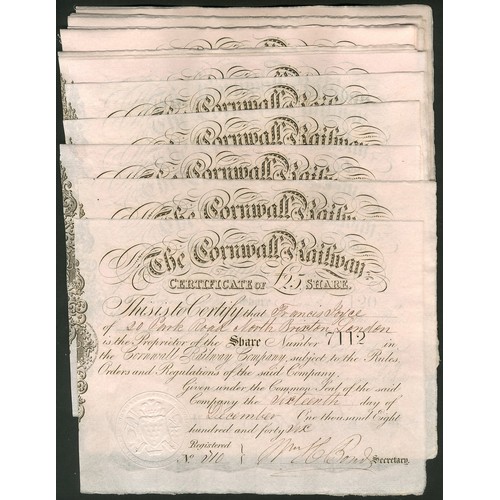 Cornwall Railw
Cornwall Railw
Cornwall Railw
The Cornwall Railw
The Cornwall Railway
CERTIFICATE OF £25 SHARE.
This is to Certify that Francis
of Park Road North Brixton London
is the Proprietor of the Share Number 7112 in
the Cornwall Railway Company, subject to the Rules,
Orders and Regulations of the said Company.
Given under the Common Seal of the said
Company the Sixteenth day of
December One thousand Eight
hundred and forty Six
Registered
No. 210 Wm H Bond Secretary.